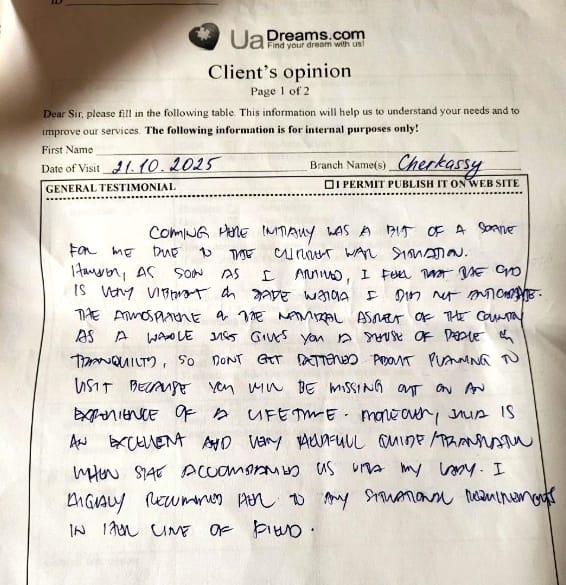 ID
UaDreams.com
Find your dream with us!
Client's opinion
Page 1 of 2
Dear Sir, please fill in the following table. This information will help us to understand your needs and to
improve our services. The following information is for internal purposes only!
First Name
Date of Visit 21.10.2025 Branch Name(s) Cherkassy
GENERAL TESTIMONIAL ☐ I PERMIT PUBLISH IT ON WEB SITE
COMING HERE INITIALLY WAS A BIT OF A SCARE
FOR ME DUE TO THE CURRENT WAR SITUATION.
HOWEVER, AS SOON AS I ARRIVED, I FEEL THAT THE CITY
IS VERY VIBRANT & SAFE WHICH I DID NOT ANTICIPATE.
THE ATMOSPHERE & THE NATURAL ASPECT OF THE COUNTRY
AS A WHOLE JUST GIVES YOU A SENSE OF PEACE &
TRANQUILITY, SO DONT GET ABOUT PLANNING TO
VISIT BECAUSE YOU WILL BE MISSING OUT ON AN
EXPERIENCE OF A LIFETIME. MOREOVER, JULIA IS
AN EXCELLENT AND VERY HELPFULL GUIDE/TRANSLATOR
WHEN SHE ACCOMPANIED US WITH MY LADY. I
HIGHLY RECOMMEND HER TO ANY SITUATIONAL REQUIREMENTS
IN HER LINE OF FIELD.